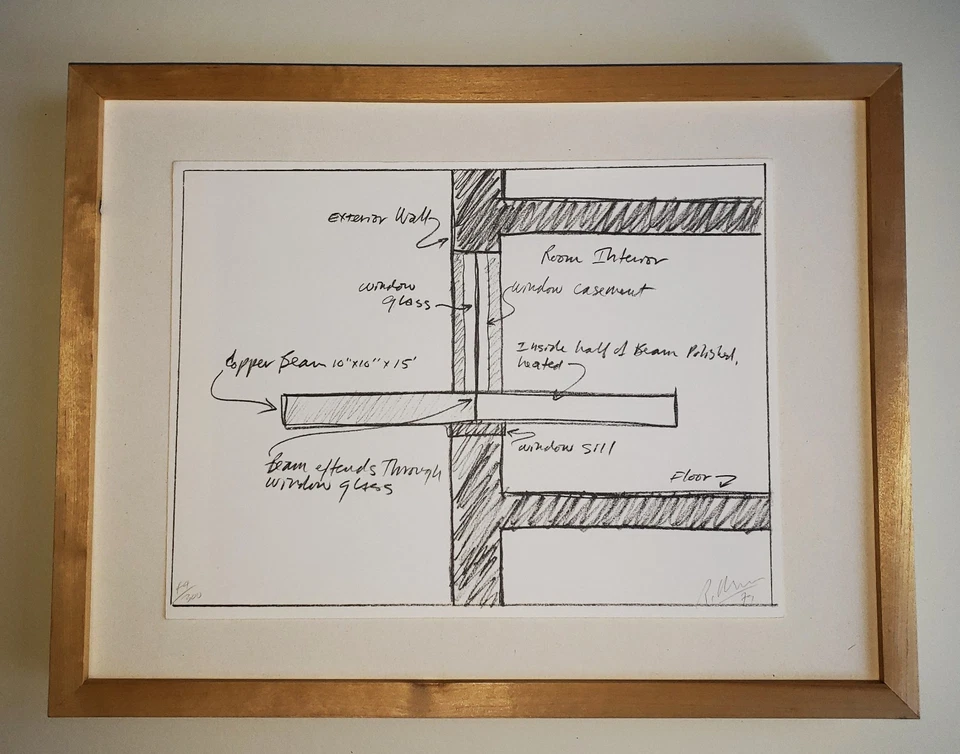 Exterior Wall
Room Interior
window
glass
window casement
Inside half of Beam Polished,
heated
Copper Beam 10"x10"x15'
window sill
Beam extends Through
window glass
Floor
/300